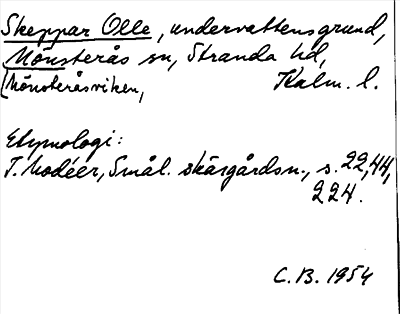 Skeppar Olle, undervattensgrund,
Mönsterås sn, Stranda hd,
(Mönsteråsviken, Kalm. l.
Etymologi:
T. Modéer, Smål. skärgårdsn., s. 22, 44,
224.
C.B. 1954